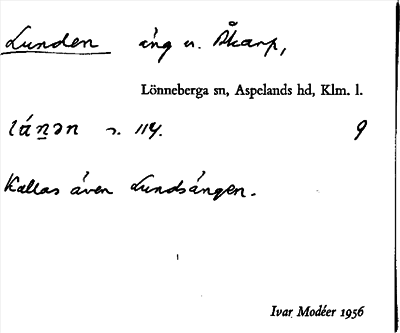 Lunden äng u. Åkarp,
Lönneberga sn, Aspelands hd, Klm. l.
lánən s. 114. 9
Kallas även Lundsängen.
Ivar Modéer 1956